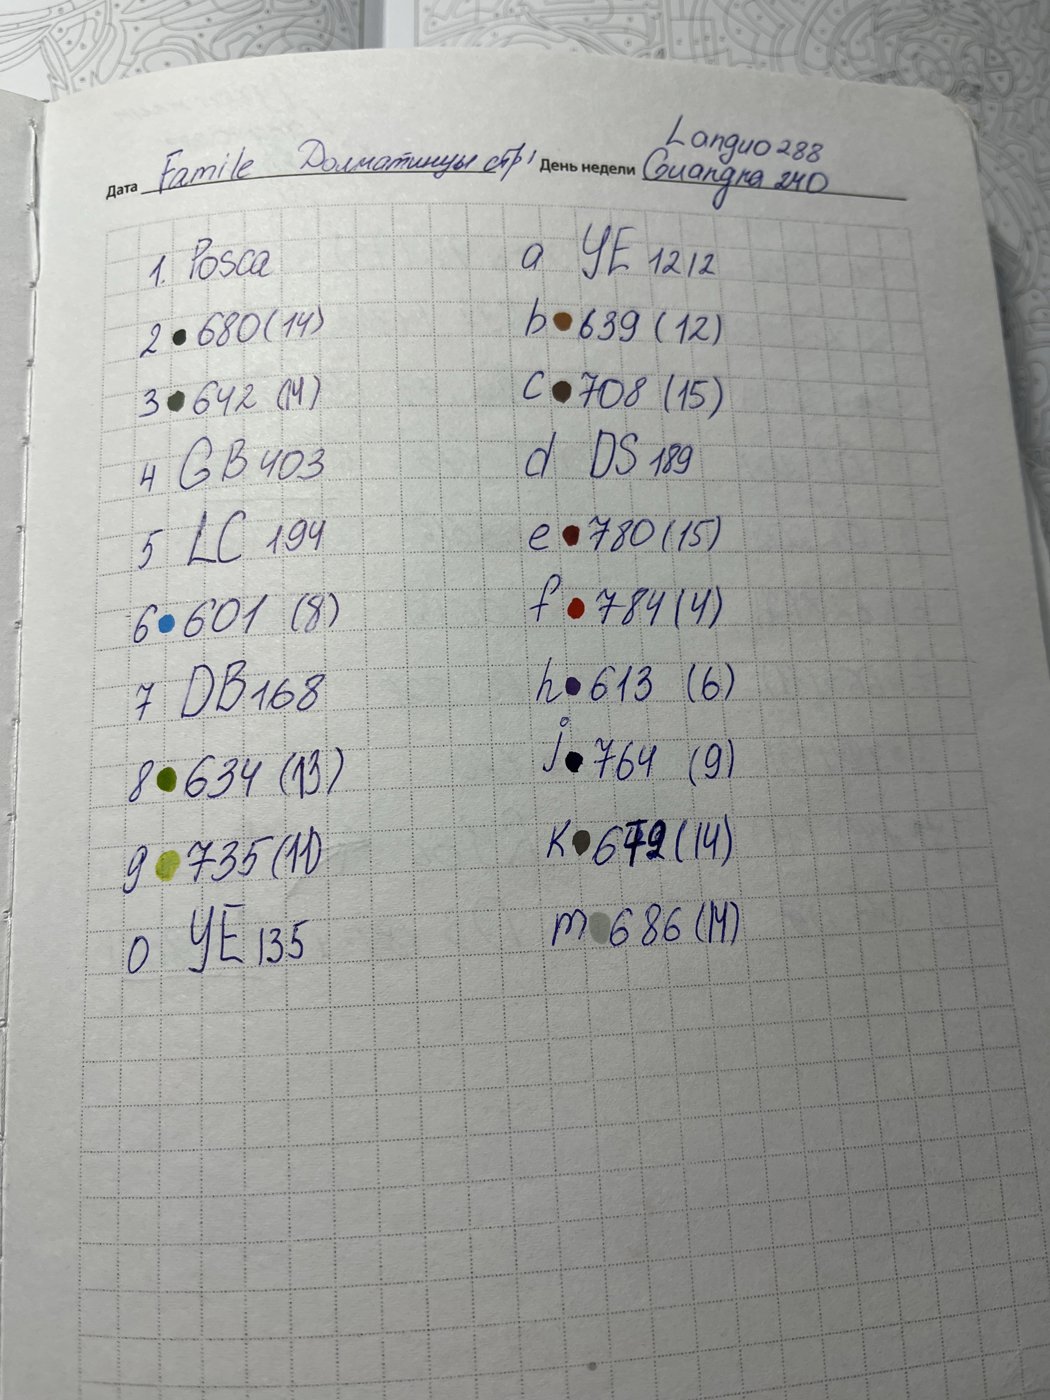 Languo 288
Дата Famile Долматинцы стр 1 День недели Guangna 240
1. Posca
2 680 (14)
3 642 (14)
4 GB 403
5 LC 194
6 601 (8)
7 DB 168
8 634 (13)
9 735 (11)
0 YE 135
a YE 1212
b 639 (12)
c 708 (15)
d DS 189
e 780 (15)
f 784 (4)
h 613 (6)
j 764 (9)
K (14)
m 686 (14)